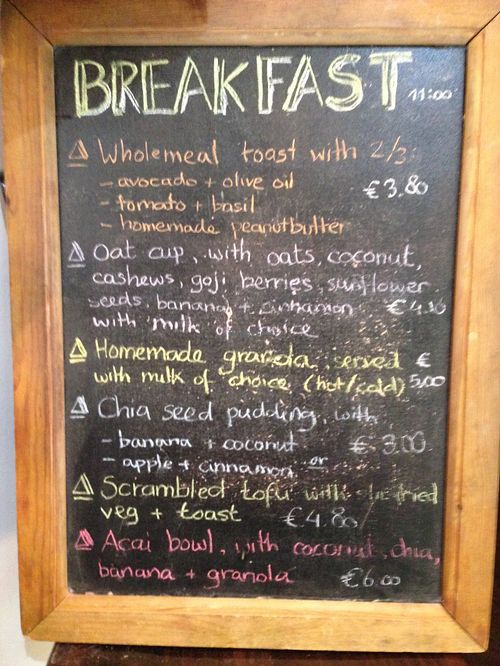 BREAKFAST 11:00
Wholemeal toast with 2/3:
- avocado + olive oil €3.80
- tomato + basil
- homemade peanutbutter
Oat cup, with oats, coconut,
cashews, goji berries, sunflower
seeds, banana + cinnamon
with milk of choice
Homemade granola, served €
with milk of choice (hot/cold) 5,00
Chia seed pudding, with
- banana + coconut €3.00
- apple + cinnamon or
Scrambled tofu with fried
veg + toast €4.80
Acai bowl, with coconut, chia,
banana + granola €6.00